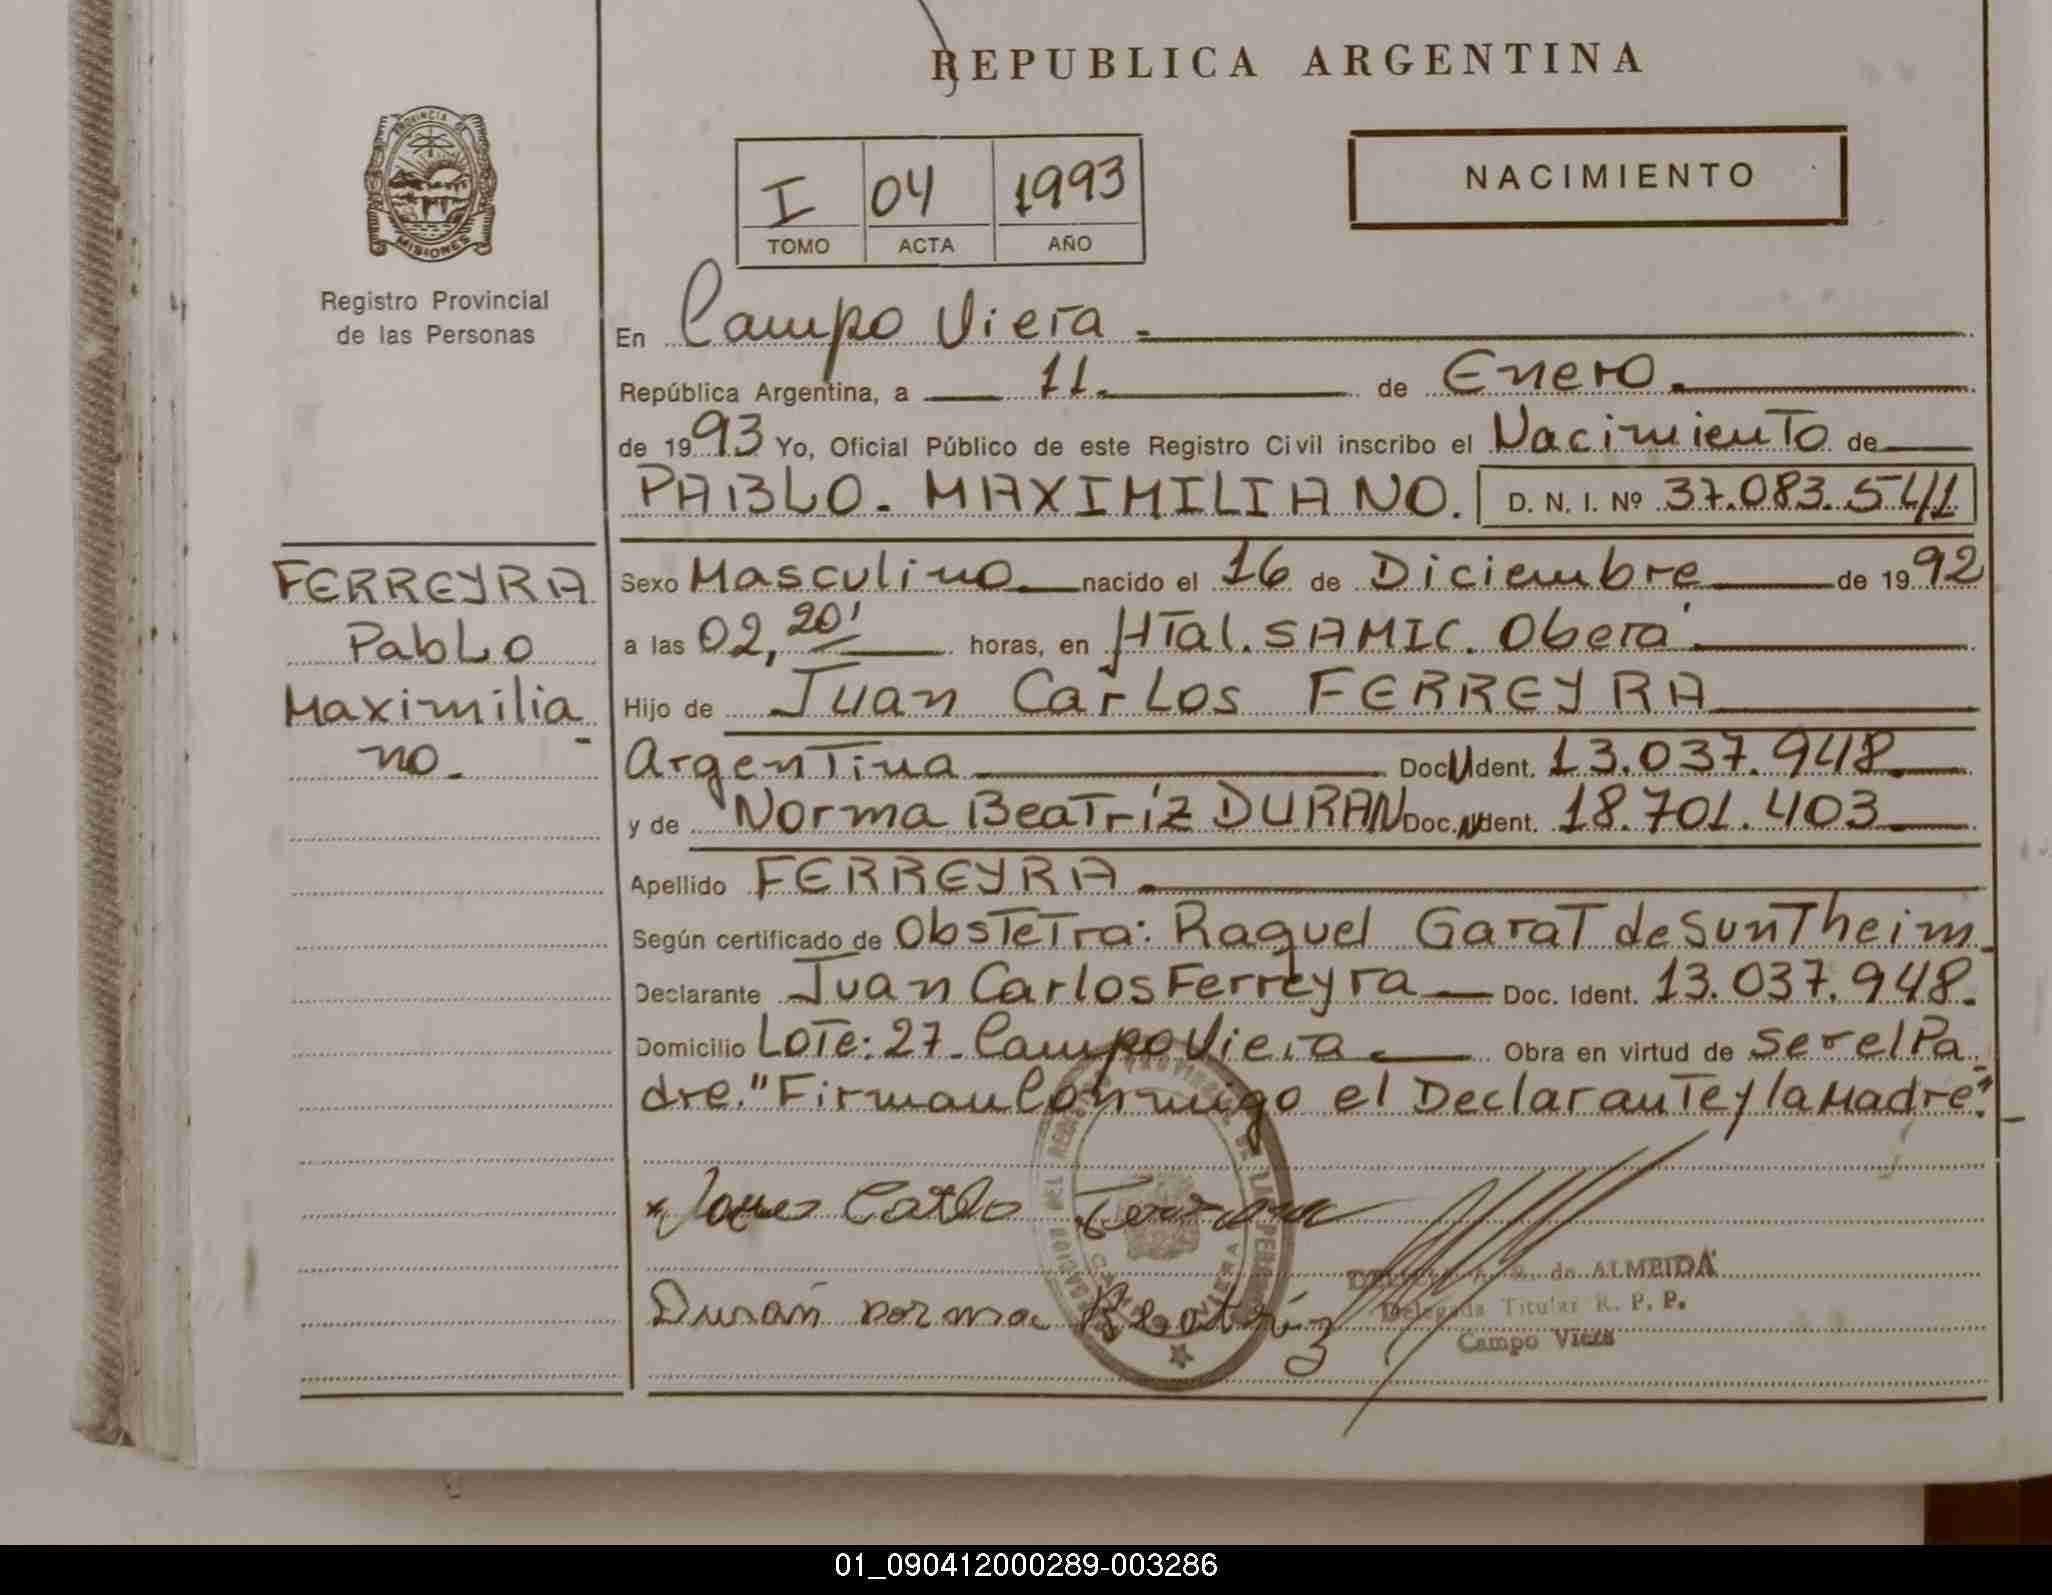 REPUBLICA ARGENTINA
PROVINCIA DE
MISIONES
Registro Provincial
de las Personas
NACIMIENTO
I 04 1993
TOMO ACTA AÑO
En Campo Viera.
República Argentina, a 11. de Enero.
de 1993 Yo, Oficial Público de este Registro Civil inscribo el Nacimiento de
PABLO. MAXIMILIANO. D. N. I. Nº 37.083.541
FERREYRA
Pablo
Maximilia-
no.
Sexo Masculino nacido el 16 de Diciembre de 1992
a las 02,20' horas, en HTal. SAMIC. Oberá
Hijo de Juan Carlos FERREYRA
Argentina Doc. Ident. 13.037.948.
y de Norma Beatríz DURAN Doc. Ident. 18.701.403
Apellido FERREYRA.
Según certificado de Obstetra: Raquel Garat de Suntheim.
Declarante Juan Carlos Ferreyra Doc. Ident. 13.037.948.
Domicilio Lote: 27. Campo Viera Obra en virtud de ser el Pa-
dre. "Firman Conmigo el Declarante y la Madre".
Duran Norma Beatríz
de ALMEIDA
Delegada Titular R. P. P.
Campo Viera
01_090412000289-003286